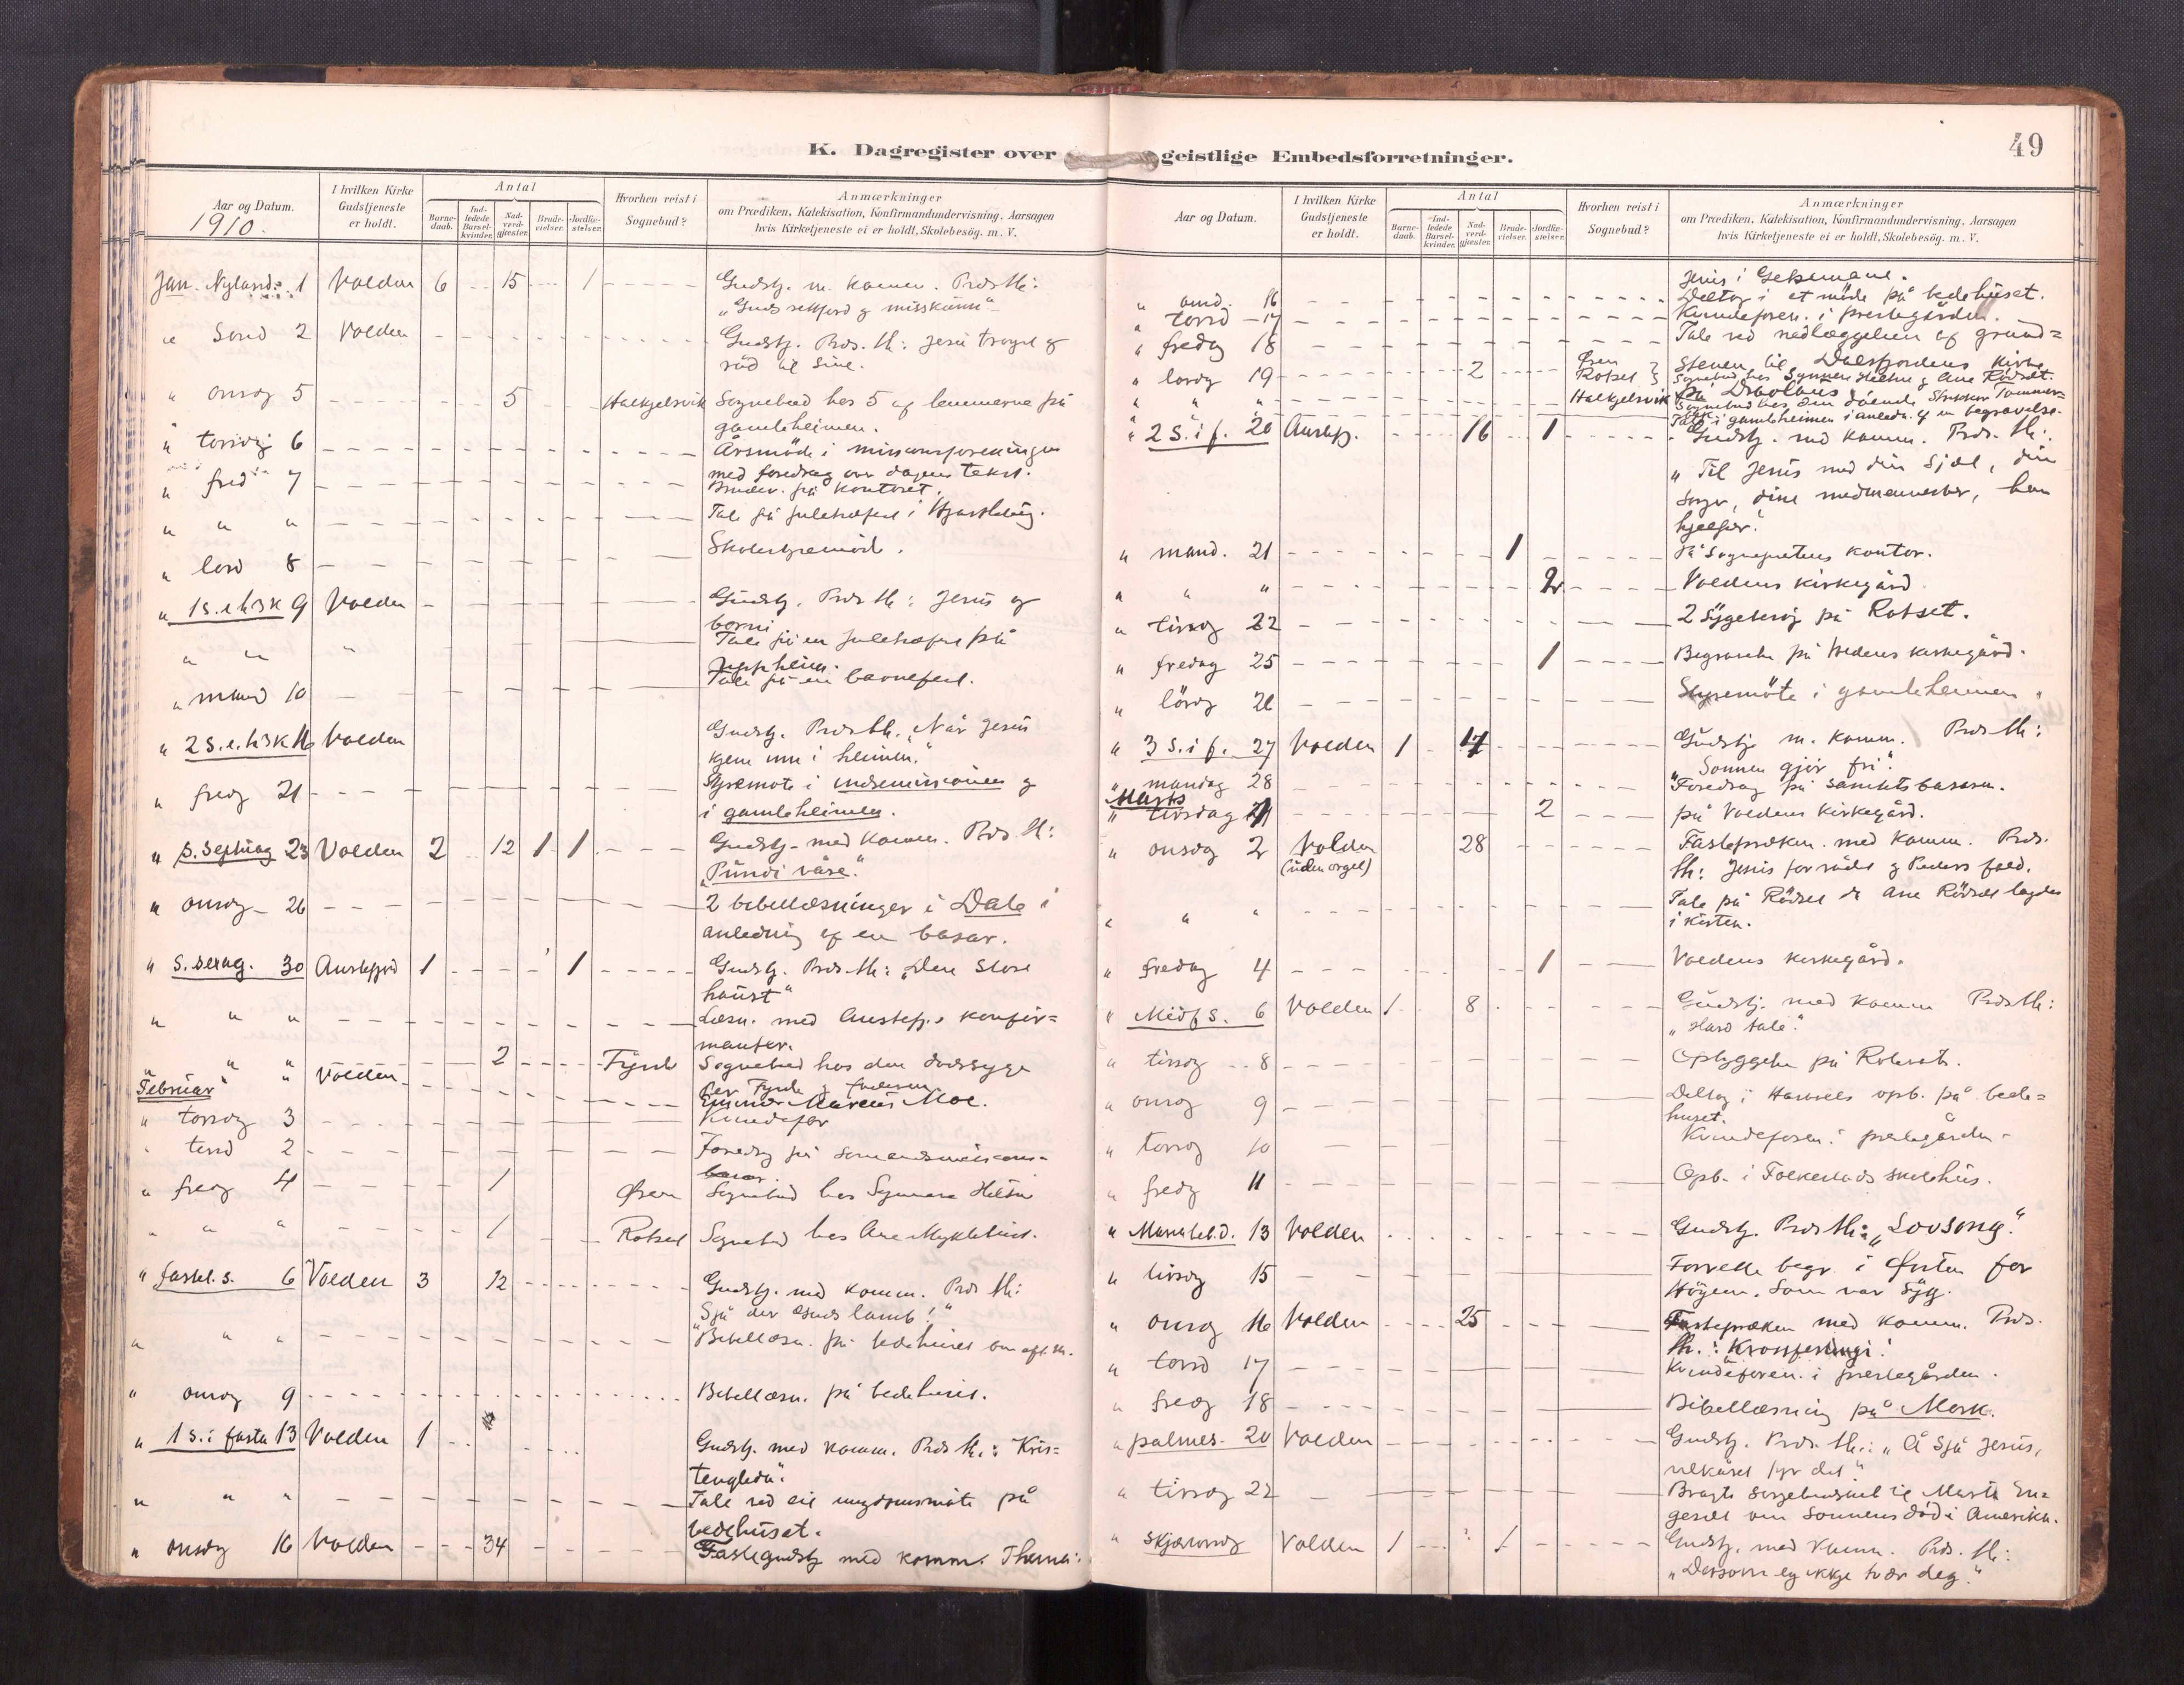 K. Dagregister over geistlige Embedsforretninger.
49
Aar og Datum.
1910.
I hvilken Kirke Gudstjeneste er holdt.
Antal
Barnedaab.
Indledede Barselkvinder.
Nadverdgjæster.
Brudevielser.
Jordfæstelser.
Hvorhen reist i Sognebud?
Anmærkninger
om Prædiken, Katekisation, Konfirmandundervisning, Aarsagen
hvis Kirketjeneste ei er holdt, Skolebesög. m. V.
Jan. Nyaarsd. 1 Volden 6 15 1 Gudstj. m. komm. Præd. th:
„Guds rettferd og miskunn"
" Sønd 2 Volden Gudstj. Præd. th: Jesu og
råd til sine.
" onsdg 5 5 Halkjelsvik Sognebud hos 5 af lemmerne på
gamleheimen.
" torsdg 6 Årsmöde i missionsforeningen
med foredrag over dagens tekst.
" fred 7 Brudev. på kontoret.
" " " Tale på juletræfest i
" lörd 8 Skolestyremöde.
" 1 s. e. h3k 9 Volden Gudstj. Præd. th: Jesus og
borni
" " " Tale på en juletræfest på
Uppheim.
" mand 10 Tale på en barnefest.
" 2 s. e. h3k 16 Volden Gudstj. Præd. th. „Når Jesus
kjem inn i heimen."
" fredg 21 Styremöte i indremissionen og
i gamleheimen.
" s. septuag 23 Volden 2 12 1 1 Gudstj. med komm. Præd th:
„Pundi våre."
" onsdg 26 2 bibellæsninger i Dale i
anledning af en basar.
" s. sexag. 30 Austefjord 1 1 Gudstj. Præd. th: „Den store
haust"
" " " Læsn. med Austefj.s konfir=
manter.
" " " 2 Fyrde Sognebud hos den dødssyge
Per Fyrde og faderen
Februar " Volden Marcus Moe.
" torsdg 3 Kvindefor
" tirsd 2 Foredrg på sømandsmissions=
basar.
" fredg 4 1 Øren Sognebud hos Synnøve Heltne
" " " 1 Rotset Sognebud hos Ane Myklebust.
" fastel. s. 6 Volden 3 12 Gudstj. med komm. Præd th:
„Sjå der Guds lamb!"
" " " Bibellæsn. på bedehuset om eft. m.
" onsdg 9 Bibellæsn. på bedehuset.
" 1 s. i fasta 13 Volden 1 Gudstj. med komm. Præd. th.: „Kris=
tengleda".
" " " Tale ved eit ungdomsmöte på
bedehuset.
" onsdg 16 Volden 34 Fastegudstj med komm. Thema:
Aar og Datum.
I hvilken Kirke Gudstjeneste er holdt.
Antal
Barnedaab.
Indledede Barselkvinder.
Nadverdgjæster.
Brudevielser.
Jordfæstelser.
Hvorhen reist i Sognebud?
Anmærkninger
om Prædiken, Katekisation, Konfirmandundervisning, Aarsagen
hvis Kirketjeneste ei er holdt, Skolebesög. m. V.
Jesus i Getsemane.
" onsd. 16 Deltog i et möde på bedehuset.
" torsd 17 Kvindeforen. i prestegården.
" fredg 18 Tale ved nedlæggelsen af grund=
stenen til Dalsfjordens kirke
" lørdg 19 2 Øren Rotset Sognebud hos Synnøve Heltne og Ane Rödset.
" " " Halkjelsvik Sognebud hos den döende
Tale i gamleheimen i anledn. af en begravelse.
" 2 s. i f. 20 Austefj. 16 1 Gudstj. med komm. Præd. th:
„Til Jesus med din sjæl, din
sorg, dine medmennesker, han
hjelper."
" mand. 21 1 På sogneprestens kontor.
" " " 2 Voldens kirkegård
" tirsdg 22 2 sygebesög på Rotset.
" fredag 25 1 Begravelse på Voldens kirkegård.
" lördg 26 Styremöte i gamleheimen
" 3 s. i f. 27 Volden 1 17 Gudstj m. komm. Præd th:
„Sonnen gjör fri".
" mandag 28 Foredrag på basaren.
Marts
" tirsdag 1 2 på Voldens kirkegård.
" onsdg 2 Volden (uden orgel) 28 Fasteprækn. med komm. Præd.
th: Jesus forråde og Peders fald.
" " " Tale på Rödset da Ane Rödset lagdes
i kisten.
" fredag 4 1 Voldens kirkegård.
" Midf s. 6 Volden 1 8 Gudstj. med komm Præd th:
„Hard tale".
" tirsdg 8 Opbyggelse på
" onsdg 9 Deltog i opb. på bede=
huset.
" torsdg 10 Kvindeforen. i prestegården
" fredg 11 Opb. i Folkestads skolehus.
" Mariæ beb. d. 13 Volden Gudstj. Præd th: „Lovsong".
" tirsdg 15 Forrette begr. i Örsten for
Höyem, som var syg.
" onsdg 16 Volden 25 Fastepræken med komm. Præd.
th.: „Krossfestingi".
" torsd 17 Kvindeforen. i prestegården.
" fredg 18 Bibellæsning på Mork.
" palmes. 20 Volden Gudstj. Præd. th.: „Å sjå Jesus,
vilkåret fyr det"
" tirsdg 22 Bragte sorgebudskab til
om sonnens död i Amerika.
" skjærtorsdg Volden 1 1 Gudstj. med komm. Præd. th:
„Dersom eg ikkje tvær deg."